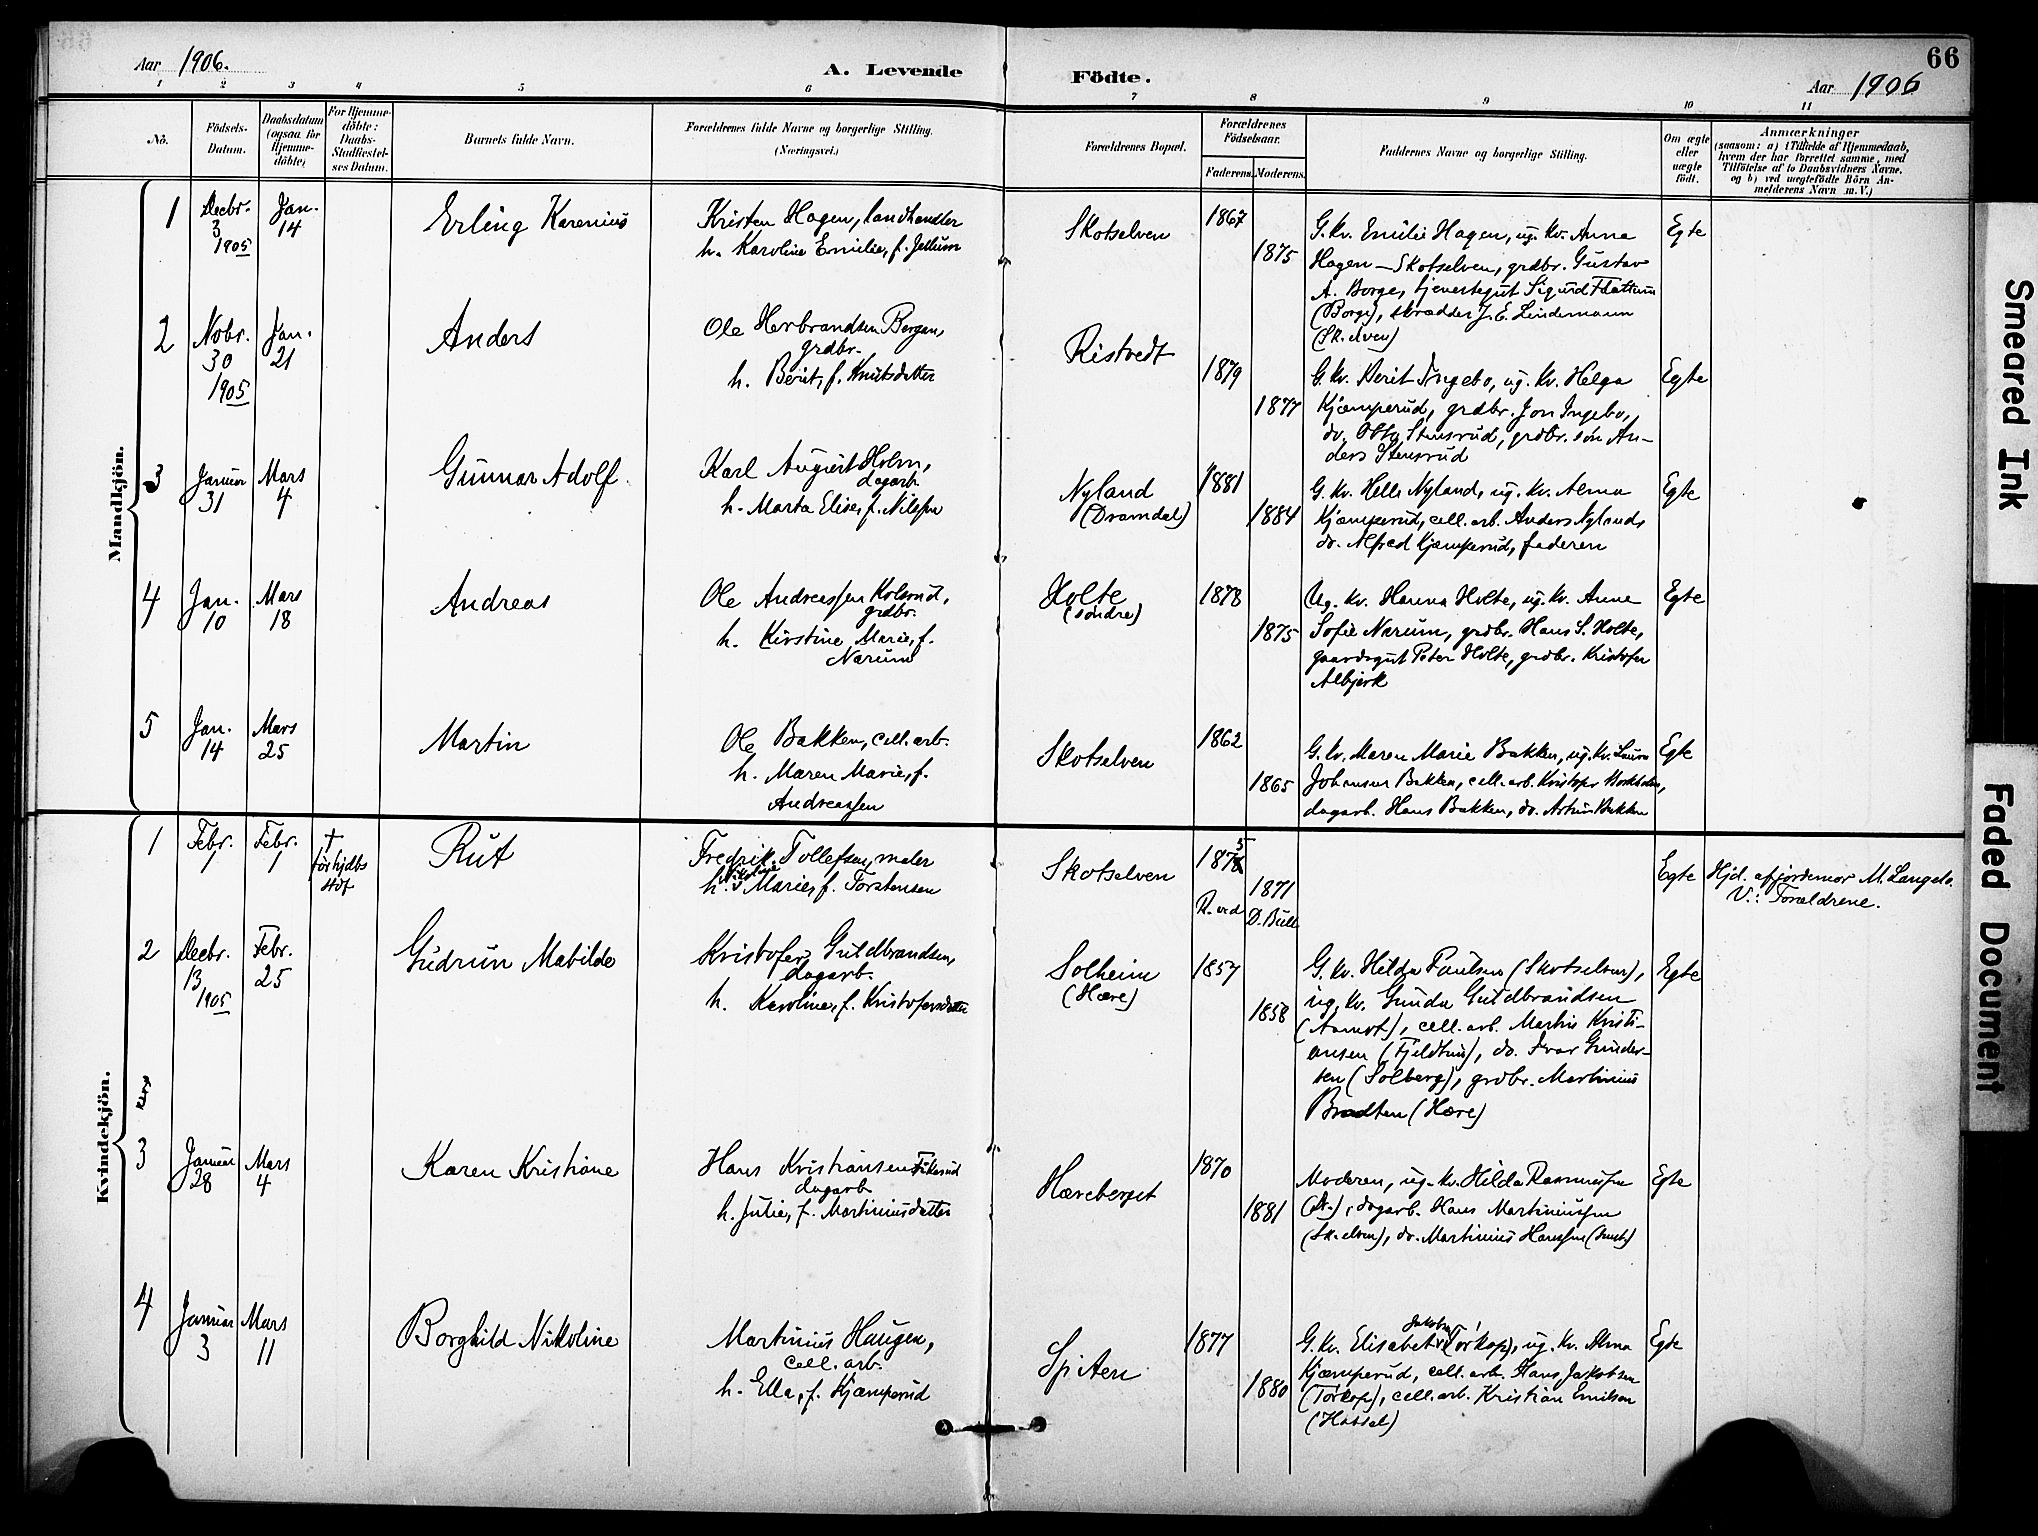 66
Aar 1906.
A. Levende
Födte.
Aar 1906
1 2 3 4 5 6 7 8 9 10 11
No.
Födsels-
Datum.
Daabsdatum
(ogsaa for
Hjemme-
döbte)
For Hjemme-
döbte:
Daabs-
Stadfæstel-
ses Datum.
Barnets fulde Navn.
Forældrenes fulde Navne og borgerlige Stilling.
(Næringsvei.)
Forældrenes Bopæl.
Forældrenes
Födselsaar.
Faderens. Moderens.
Faddernes Navne og borgerlige Stilling.
Om ægte
eller
uægte
födt.
Anmærkninger
(saasom: a) i Tilfælde af Hjemmedaab,
hvem der har forrettet samme, med
Tilföielse af to Daabsvidners Navne.
og b) ved uægtefödte Börn An-
melderens Navn m. V.)
Mandkjön.
1
Decbr.
3
1905
Jan.
14
Erling Karenius
Kristen Hagen, landhandler
h. Karoline Emilie, f. Jellum
Skotselven
1867
1875
G. kv. Emilie Hagen, ug. kv. Anna
Hagen - Skotselven, grdbr. Gustav
A. Borge, tjenestegut Sigurd Flattum
(Borge), skrædder J. E. Lindemann
(Sk.elven)
Egte
2
Nobr.
30
1905
Jan.
21
Anders
Ole Herbrandsen Bergan,
grdbr.
h. Berit, f. Knutsdatter
Ristvedt
1879
1877
G. kv. Berit Ingebo, ug. kv. Helga
Kjæmperud, grdbr. Jon Ingebo,
do. Otto Stensrud, grdbr. søn An-
ders Stensrud
Egte
3
Januar
31
Mars
4
Gunnar Adolf
Karl August Holm,
dagarb.
h. Marta Elise, f. Nilssen
Nyland
(Dramdal)
1881
1884
G. kv. Helle Nyland, ug. kv. Alma
Kjæmperud, cell. arb. Anders Nyland,
do. Alfred Kjæmperud, faderen
Egte
4
Jan.
10
Mars
18
Andreas
Ole Andreassen Kolsrud,
grdbr.
h. Kirstine Marie, f.
Narum
Holte
(søndre)
1878
1875
Ug. kv. Hanna Holte, ug. kv. Anne
Sofie Narum, grdbr. Hans S. Holte,
gaardsgut Peter Holte, grdbr. Kristofer
Albjerk
Egte
5
Jan.
14
Mars
25
Martin
Ole Bakken, cell. arb.
h. Maren Marie, f.
Andreassen
Skotselven
1862
1865
G. kv. Maren Marie Bakken, ug. kv. Laura
Johansen Bakken, cell. arb. Kristofer
dagarb. Hans Bakken, do. Bakken
Egte
Kvindekjön.
1
Febr.
1
Febr.
1
†
før hjdbs
stdf
Rut
Fredrik Tollefsen, maler
h. Nikoline Marie, f. Torstensen
Skotselven
1875
R. ved
1871
D. Bull
Egte
Hjd. af jordemor M. Langelo.
V.: Forældrene.
2
Decbr.
13
1905
Febr.
25
Gudrun Mabilde
Kristofer Guldbrandsen,
dagarb.
h. Karoline, f. Kristofersdatter
Solheim
(Hære)
1857
1858
G. kv. Hilda Paulsen (Skotselven),
ug. kv. Gunda Guldbrandsen
(Aamot), cell. arb. Martin Kristi-
ansen (Fjeldtun), do. Ivar Gunder-
sen (Solberg), grdbr. Martinius
Braaten (Hære)
Egte
3
Januar
28
Mars
4
Karen Kristiane
Hans Kristiansen
dagarb.
h. Julie, f. Martiniusdatter
Hæreberget
1870
1881
Moderen, ug. kv. Hilda Rasmussen
dagarb. Hans Martiniussen
(Sk.elven), do. Martinius Hanssen
Egte
4
Januar
3
Mars
11
Borghild Nikoline
Martinius Haugen,
cell. arb.
h. Ella, f. Kjæmperud
Spiten
1877
1880
G. kv. Elisabet Jakobsen (Torkop), ug. kv. Alma
Kjæmperud, cell. arb. Hans Jakobsen
(Torkop), cell. arb. Kristian Emilson
(Hassel)
Egte
Smeared Ink
Faded Document